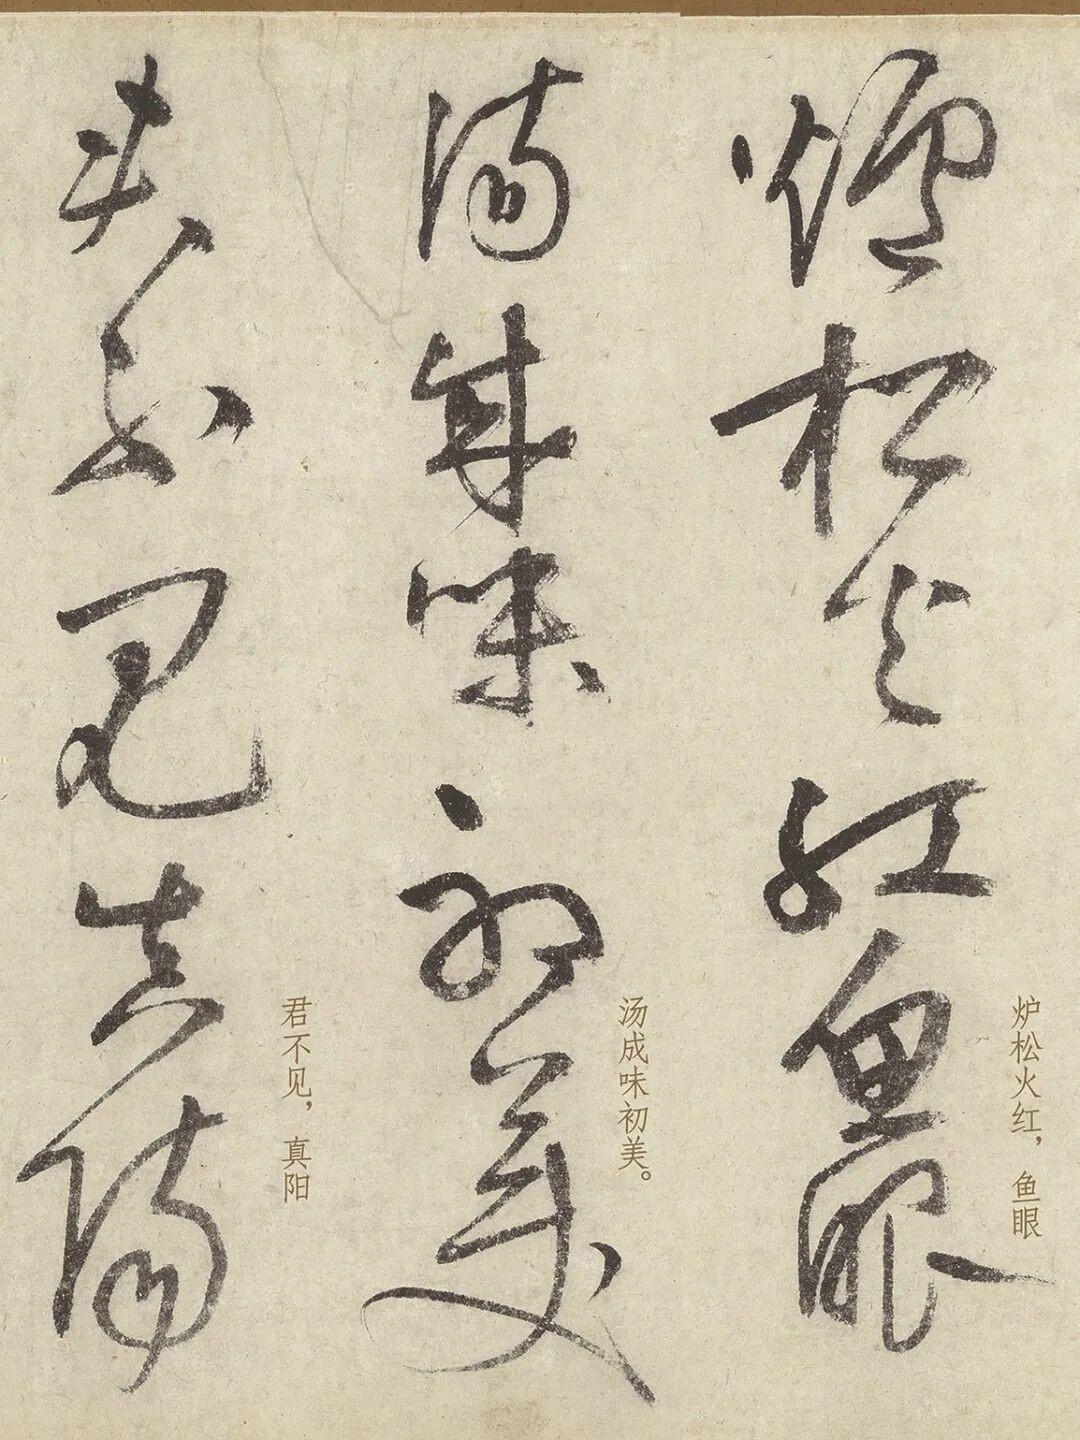 炉松火红，鱼眼
爐松火紅魚眼
汤成味初美。
湯成味初美
君不见，真阳
君不見真陽